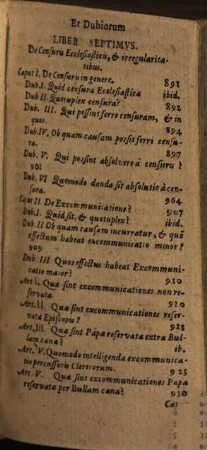 Et Dubiorum
LIBER SEPTIMVS.
De Censuris Ecclesiasticis, & irregularita-
tibus.
Caput I. De Censuris in genere. 891
Dub. I. Quid censura Ecclesiastica ibid.
Dub. II. Quotuplex censura? 892
Dub. III. Qui possint ferre censuram, & in
quos. 894
Dub. IV. Ob quam causam possit ferri censu-
ra. 897
Dub. V. Qui possint absolvere à censuris?
901
Dub. VI. Quomodo danda sit absolutio à cen-
sura. 964
Caput II. De Excommunicatione? 907
Dub. I. Quid sit, & quotuplex? ibid.
Dub. II. Ob quam causam incurratur, & quē
effectum habeat excommunicatio minor?
909
Dub. III. Quos effectus habeat Excommuni-
catio maior? 910
Art. I. Quæ sint excommunicationes non re-
servata. 920
Art. II. Quæ sint excommunicationes reser-
vata Episcopo? 923
Art. III. Quæ sint Papæ reservata extra Bul-
lam cana? ib.
Art. IV. Quomodo intelligenda excommunica-
tio percussoris Clericorum. 928
Art. V. Quæ sint excommunicationes Papæ
reservata per Bullam cana? 930
Cap